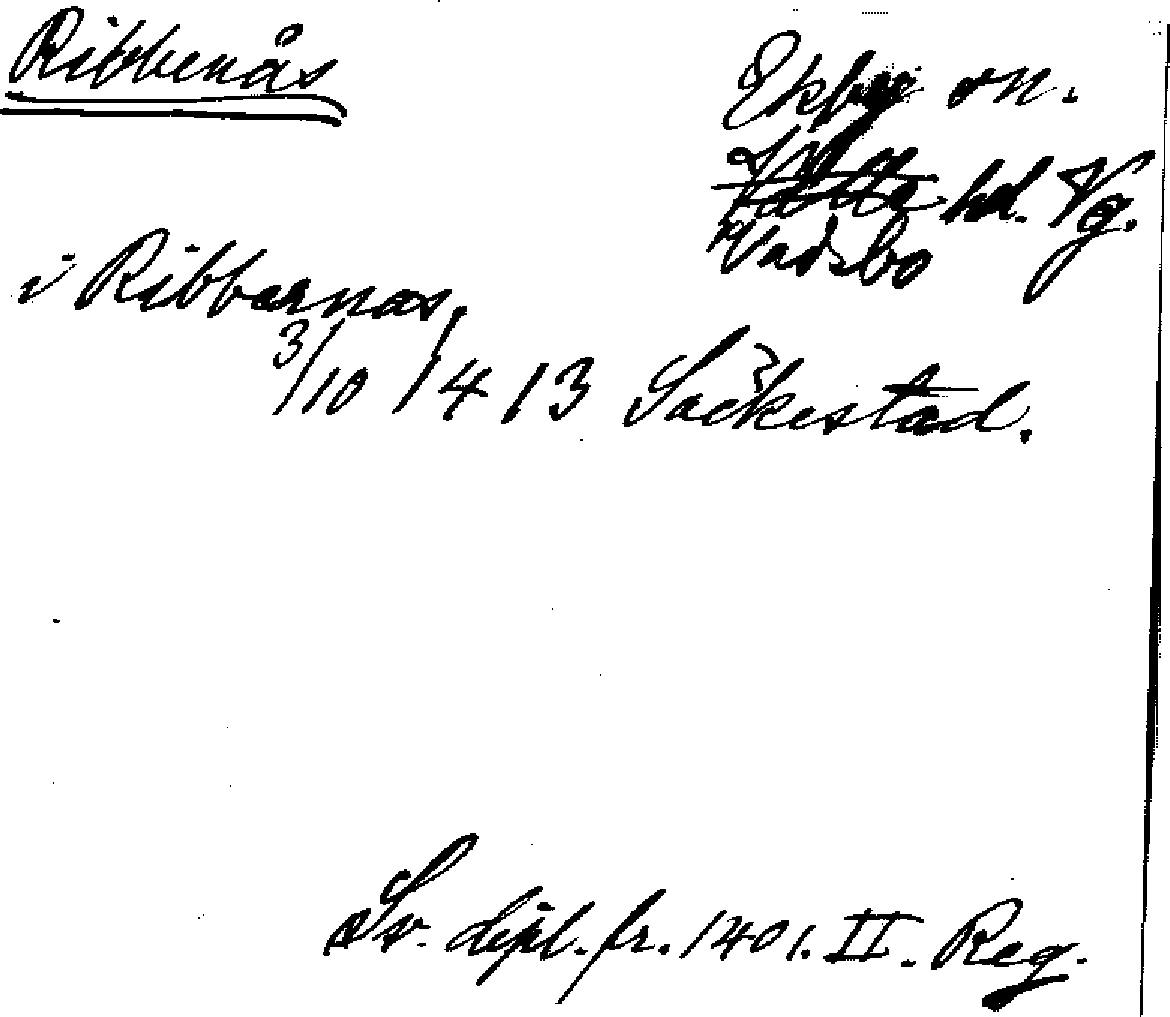 Ribbenås
Ekby sn.
hd. Vg.
Vadsbo
i Ribbarnas,
3/10 1413 Sackestad.
Sv. dipl. fr. 1401. II. Reg.